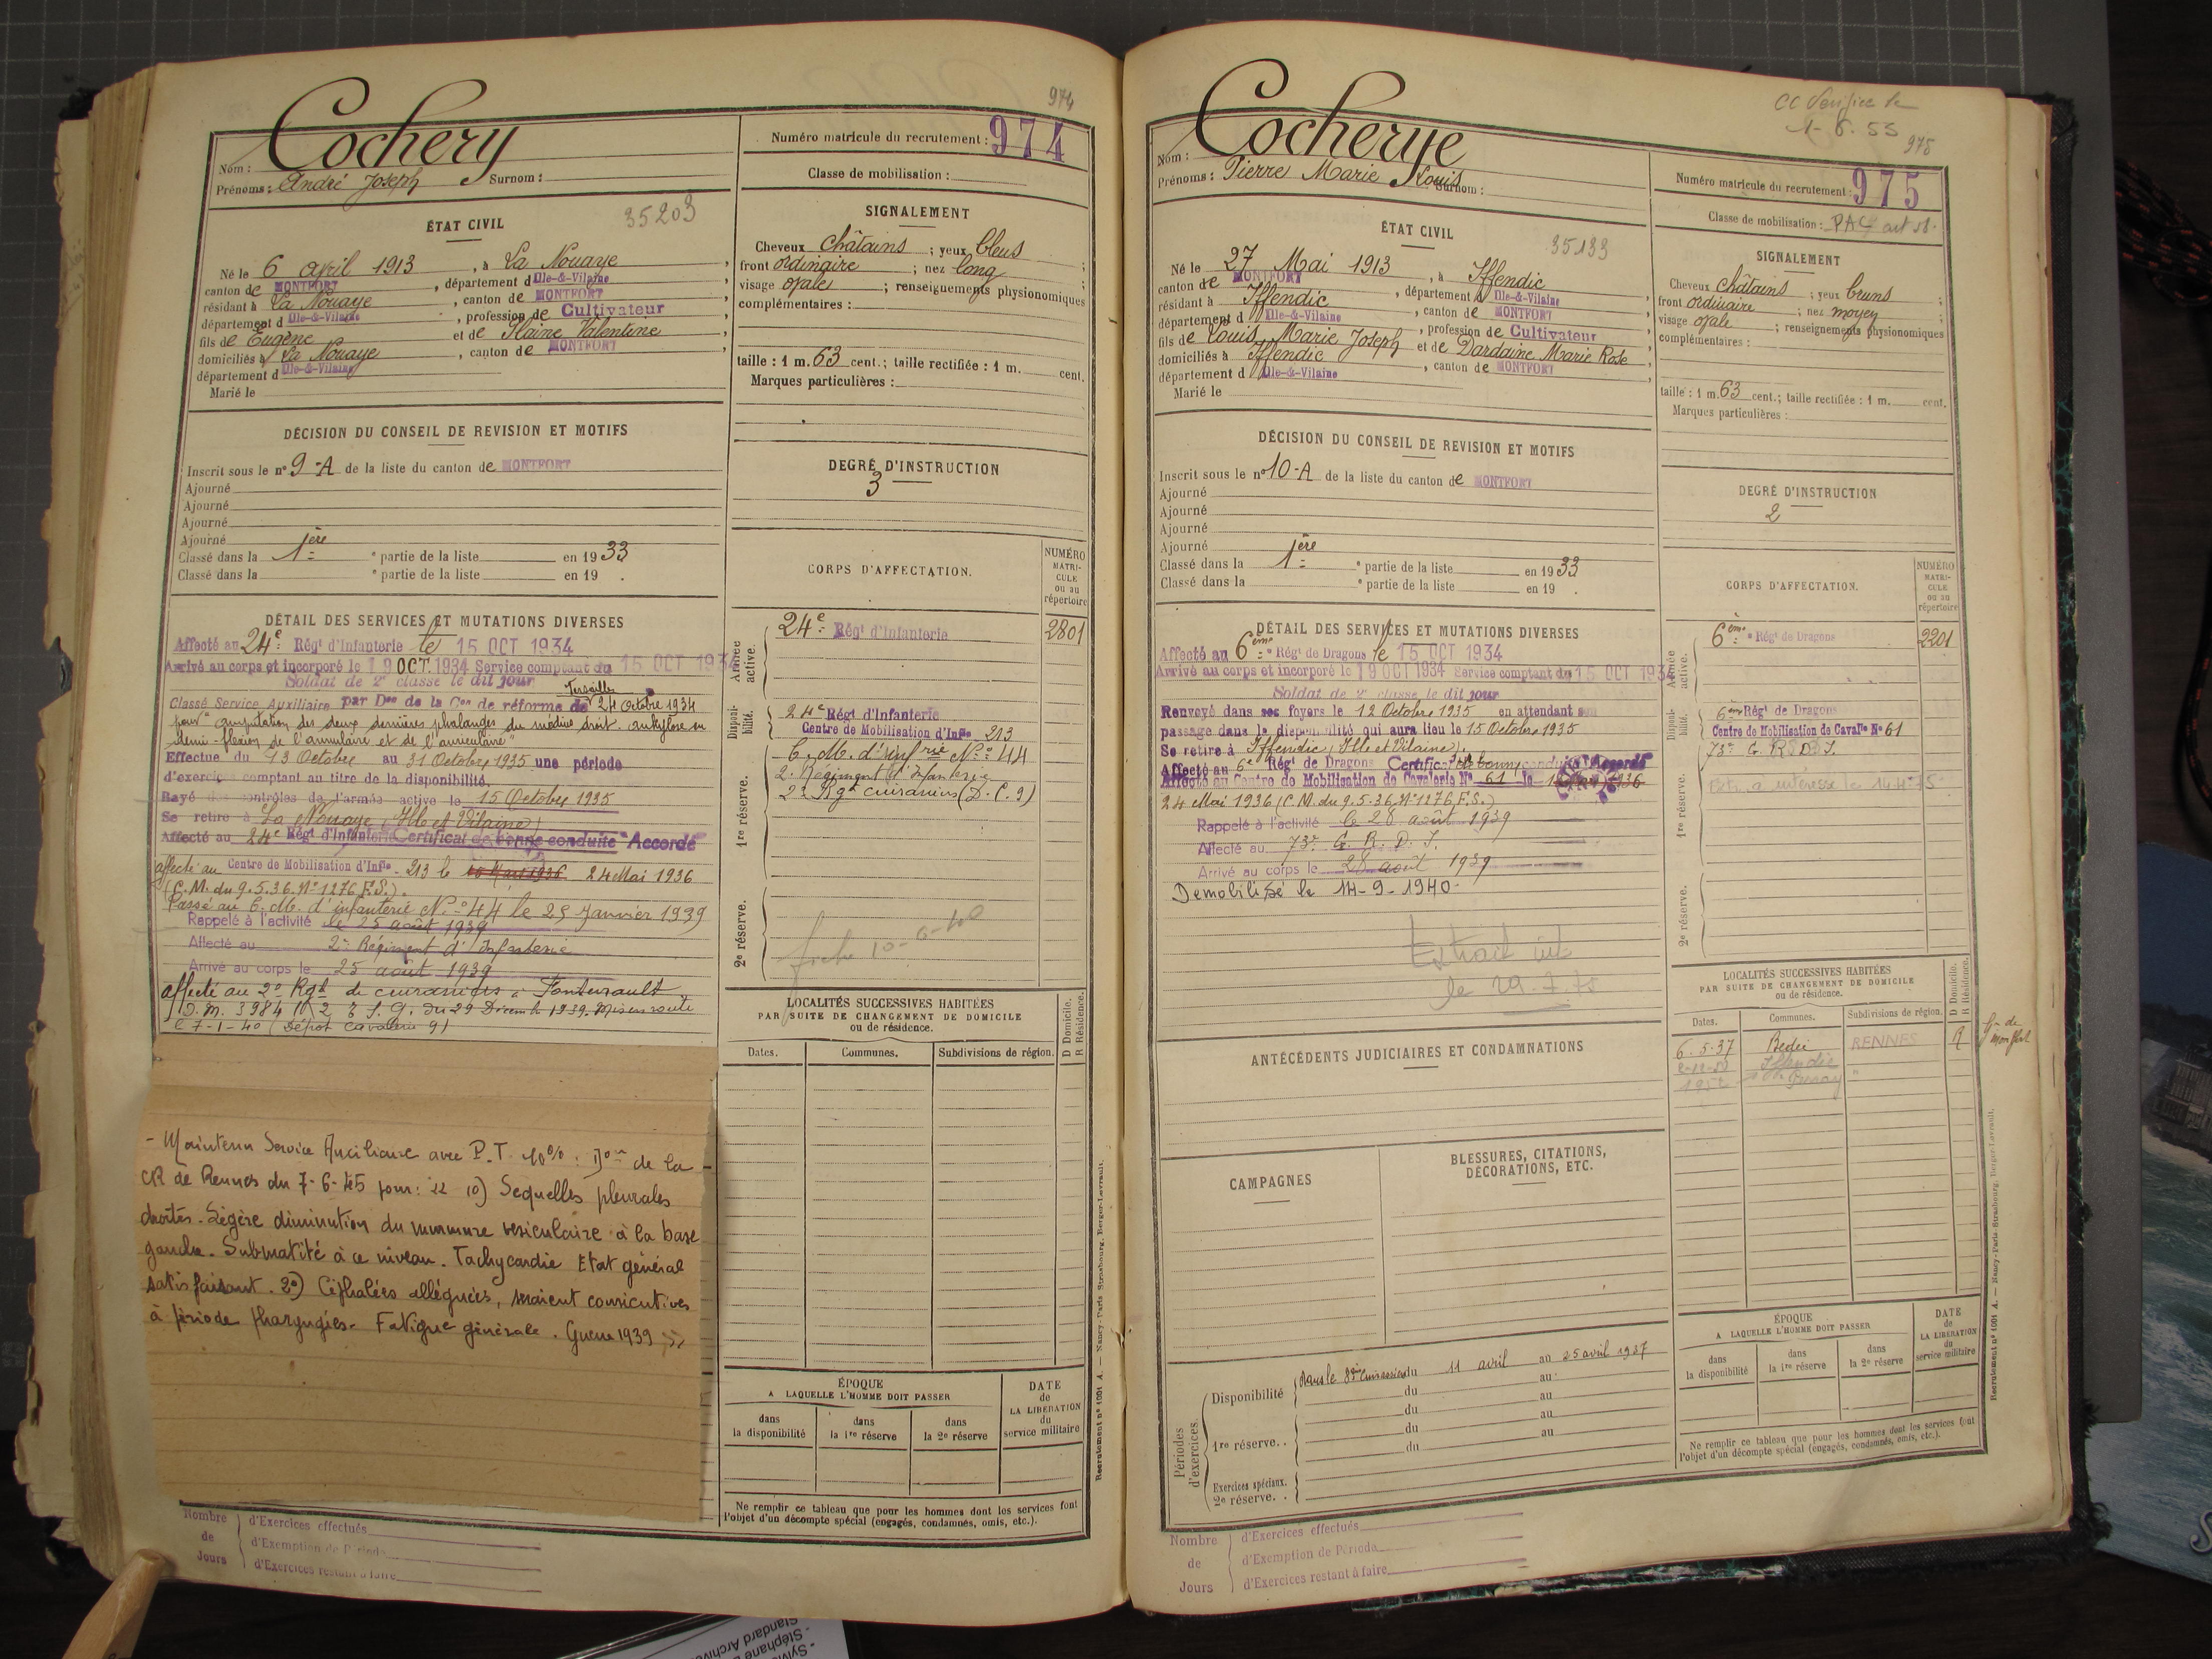 974
Cochery
Nom :
Prénoms : André Joseph Surnom :
Numéro matricule du recrutement : 974
Classe de mobilisation :
ÉTAT CIVIL
35203
Né le 6 avril 1913, à La Nouaye,
canton de MONTFORT, département d Ille-&-Vilaine
résidant à La Nouaye, canton de MONTFORT
département d Ille-&-Vilaine, profession de Cultivateur
fils de Eugène et de Slaine Valentine,
domiciliés à La Nouaye, canton de MONTFORT,
département d Ille-&-Vilaine
Marié le
SIGNALEMENT
Cheveux châtains ; yeux bleus ;
front ordinaire ; nez long ;
visage ovale ; renseignements physionomiques
complémentaires :
taille : 1 m. 63 cent.; taille rectifiée : 1 m. cent.
Marques particulières :
DÉCISION DU CONSEIL DE REVISION ET MOTIFS
Inscrit sous le n° 9-A de la liste du canton de MONTFORT
Ajourné
Ajourné
Ajourné
Ajourné
Classé dans la 1ère e partie de la liste en 1933
Classé dans la e partie de la liste en 19 .
DEGRÉ D'INSTRUCTION
3
DÉTAIL DES SERVICES ET MUTATIONS DIVERSES
Affecté au 24e Régt d'Infanterie le 15 OCT 1934
Arrivé au corps et incorporé le 19 OCT. 1934 Service comptant du 15 OCT 1934
Soldat de 2e classe le dit jour
Classé Service Auxiliaire par Don de la Con de réforme de Versailles 24 Octobre 1934
pour "amputation des deux dernières phalanges du médius droit. ankylose en
demi-flexion de l'annulaire et de l'auriculaire"
Effectue du 13 Octobre au 31 Octobre 1935 une période
d'exercice comptant au titre de la disponibilité.
Rayé des contrôles de l'armée active le 15 Octobre 1935
Se retire à La Nouaye (Ille et Vilaine)
Affecté au 24e Régt d'Infanterie Certificat de bonne conduite "Accordé"
affecté au Centre de Mobilisation d'Infie 213 le 24 Mai 1936
(C.M. du 9.5.36. N° 1176 F.S.).
Passé au C. M. d'infanterie N° 44 le 25 Janvier 1939
Rappelé à l'activité le 25 août 1939
Affecté au 2e Régiment d'Infanterie
Arrivé au corps le 25 août 1939
affecté au 2e Rgt de cuirassiers à Fontevrault
C 7-1-40 (Dépôt cavalerie 9)
CORPS D'AFFECTATION.
NUMÉRO MATRICULE ou au répertoire
Armée active.
24e Régt d'Infanterie 2801
Disponibilité.
24e Régt d'Infanterie
Centre de Mobilisation d'Infie 213
1re réserve.
C. M. d'infrie N° 44
2e Régiment d'Infanterie
2e Rgt cuirassiers (D.C. 9)
2e réserve.
fiche 10-6-40
- Maintenu Service Auxiliaire avec P.T. 10% : Don de la
CR de Rennes du 7-6-45 pour : << 1°) Sequelles pleurales
droites. Légère diminution du murmure vésiculaire à la base
gauche. Submatité à ce niveau. Tachycardie Etat général
satisfaisant. 2°) Céphalées alléguées, seraient consécutives
à période pharyngée. Fatigue générale. Guerre 1939 >>
LOCALITÉS SUCCESSIVES HABITÉES
PAR SUITE DE CHANGEMENT DE DOMICILE
ou de résidence.
D Domicile.
R Résidence.
Dates. Communes. Subdivisions de région.
ÉPOQUE
A LAQUELLE L'HOMME DOIT PASSER
dans la disponibilité
dans la 1re réserve
dans la 2e réserve
DATE de LA LIBERATION du service militaire
Ne remplir ce tableau que pour les hommes dont les services font
l'objet d'un décompte spécial (engagés, condamnés, omis, etc.).
Recrutement n° 1001 A. — Nancy-Paris-Strasbourg, Berger-Levrault.
Nombre de Jours
d'Exercices effectués
d'Exemption de Période
d'Exercices restant à faire
CC Verifiée le
1-6.53
975
Cocherye
Nom :
Prénoms : Pierre Marie Louis Surnom :
Numéro matricule du recrutement : 975
Classe de mobilisation : PAC art 58.
ÉTAT CIVIL
35133
Né le 27 Mai 1913, à Iffendic
canton de MONTFORT, département d Ille-&-Vilaine
résidant à Iffendic, canton de MONTFORT
département d Ille-&-Vilaine, profession de Cultivateur
fils de Louis Marie Joseph et de Dardaine Marie Rose
domiciliés à Iffendic, canton de MONTFORT
département d Ille-&-Vilaine
Marié le
SIGNALEMENT
Cheveux châtains ; yeux bruns ;
front ordinaire ; nez moyen ;
visage ovale ; renseignements physionomiques
complémentaires :
taille : 1 m. 63 cent.; taille rectifiée : 1 m. cent.
Marques particulières :
DÉCISION DU CONSEIL DE REVISION ET MOTIFS
Inscrit sous le n° 10-A de la liste du canton de MONTFORT
Ajourné
Ajourné
Ajourné
Ajourné
Classé dans la 1ère e partie de la liste en 1933
Classé dans la e partie de la liste en 19 .
DEGRÉ D'INSTRUCTION
2
DÉTAIL DES SERVICES ET MUTATIONS DIVERSES
Affecté au 6ème Régt de Dragons le 15 OCT 1934
Arrivé au corps et incorporé le 19 OCT 1934 Service comptant du 15 OCT 1934
Soldat de 2e classe le dit jour
Renvoyé dans ses foyers le 12 Octobre 1935 en attendant son
passage dans la disponibilité qui aura lieu le 15 Octobre 1935
Se retire à Iffendic (Ille et Vilaine).
Affecté au 6e Régt de Dragons Certificat de bonne conduite "Accordé"
Affecté au Centre de Mobilisation de Cavalerie N° 61 le 1936
24 Mai 1936 (C.M. du 9.5.36. N° 1176 F.S.)
Rappelé à l'activité le 28 août 1939
Affecté au 73e G. R. D. I.
Arrivé au corps le 28 août 1939
Demobilisé le 14-9-1940.
Extrait
le 29.7.75
CORPS D'AFFECTATION.
NUMÉRO MATRICULE ou au répertoire
Armée active.
6ème Régt de Dragons 2201
Disponibilité.
6ème Régt de Dragons
Centre de Mobilisation de Cavalie N° 61
1re réserve.
73e G. R. D. I.
2e réserve.
ANTÉCÉDENTS JUDICIAIRES ET CONDAMNATIONS
CAMPAGNES
BLESSURES, CITATIONS,
DÉCORATIONS, ETC.
LOCALITÉS SUCCESSIVES HABITÉES
PAR SUITE DE CHANGEMENT DE DOMICILE
ou de résidence.
D Domicile.
R Résidence.
Dates. Communes. Subdivisions de région.
6.5.37 Bedée RENNES R
Iffendic
Périodes d'exercices.
Disponibilité dans le 8ème Cuirassiers du 11 avril au 25 avril 1937
du au
du au
1re réserve. . du au
du au
Exercices spéciaux.
2e réserve. .
ÉPOQUE
A LAQUELLE L'HOMME DOIT PASSER
dans la disponibilité
dans la 1re réserve
dans la 2e réserve
DATE de LA LIBERATION du service militaire
Ne remplir ce tableau que pour les hommes dont les services font
l'objet d'un décompte spécial (engagés, condamnés, omis, etc.).
Recrutement n° 1001 A. — Nancy-Paris-Strasbourg, Berger-Levrault.
Nombre de Jours
d'Exercices effectués
d'Exemption de Période
d'Exercices restant à faire